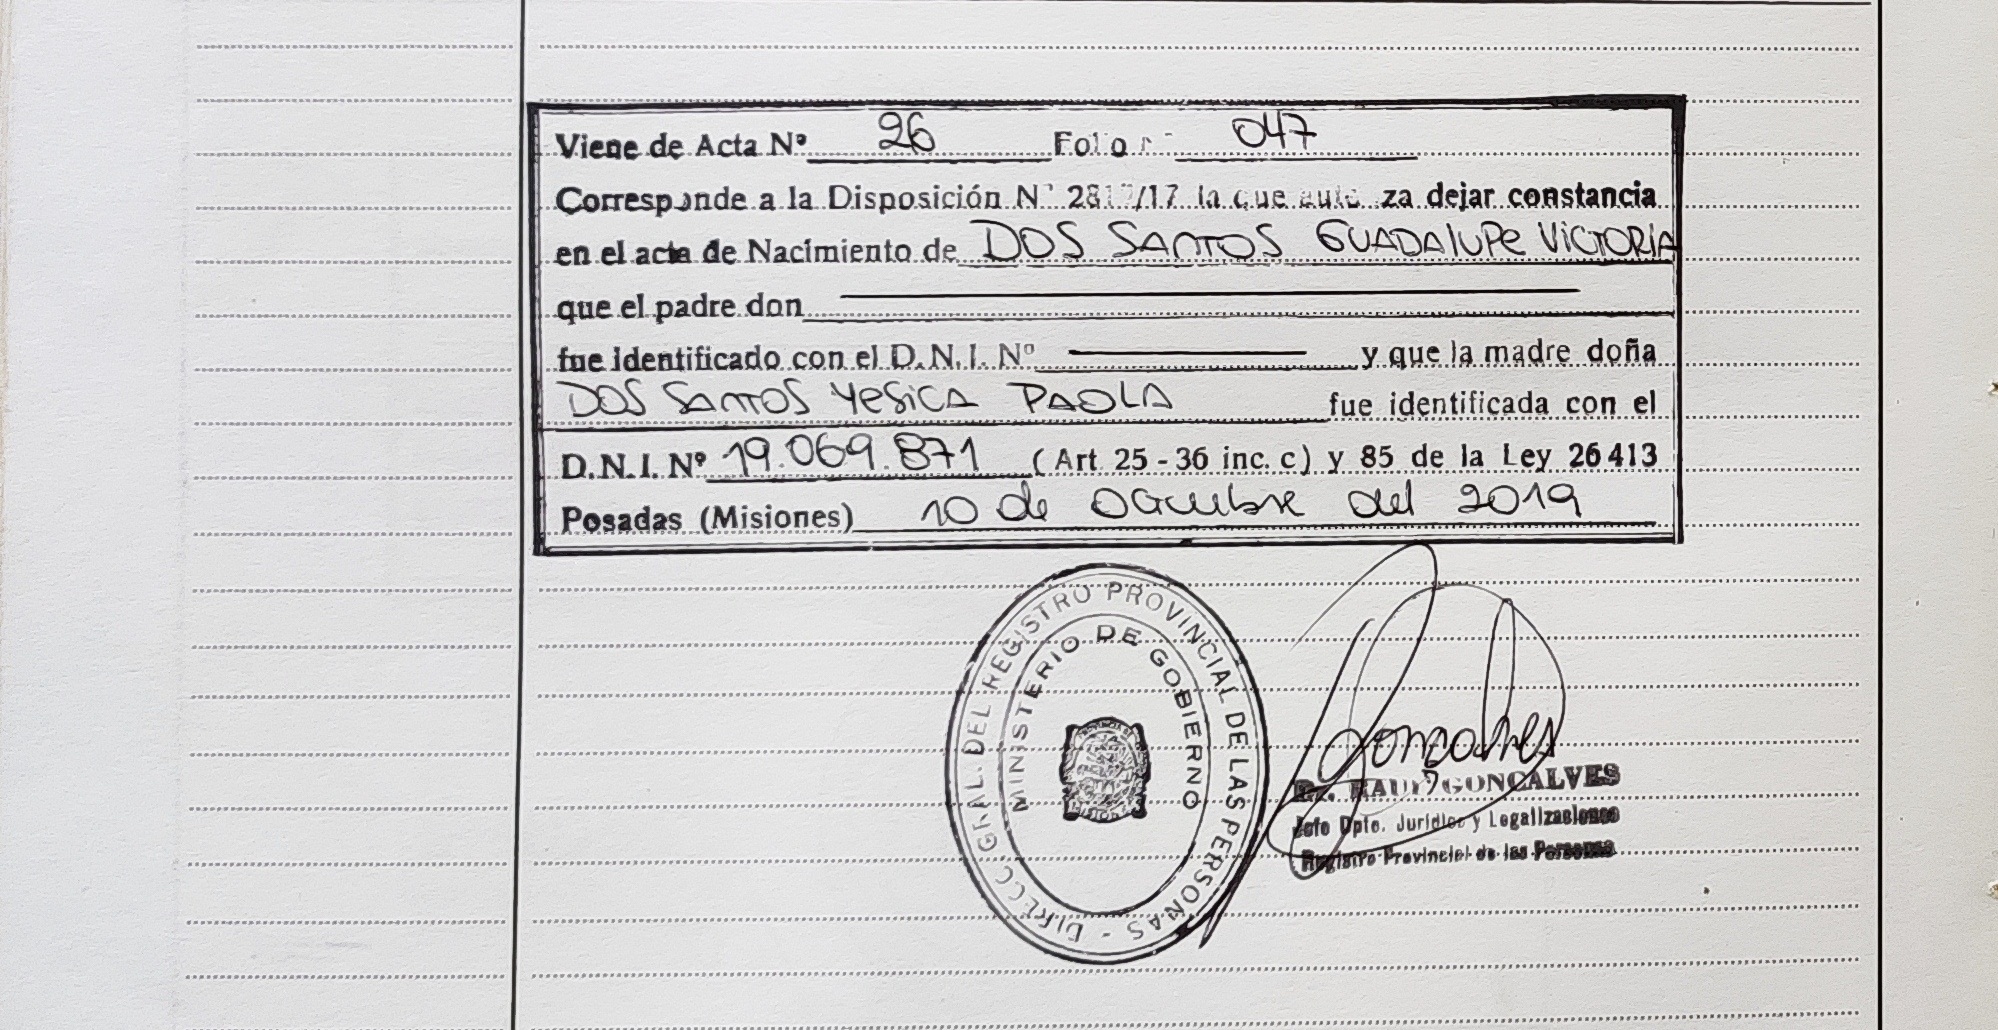 Viene de Acta Nº 26 Folio 047
Corresponde a la Disposición Nº /17 la que autoriza dejar constancia
en el acta de Nacimiento de DOS SANTOS GUADALUPE VICTORIA
que el padre don
fue identificado con el D.N.I. Nº y que la madre doña
DOS SANTOS YESICA PAOLA fue identificada con el
D.N.I. Nº 19.069.871 (Art 25 - 36 inc. c) y 85 de la Ley 26413
Posadas (Misiones) 10 de Octubre del 2019
DIRECC. GRAL. DEL REGISTRO PROVINCIAL DE LAS PERSONAS -
MINISTERIO DE GOBIERNO
Goncalves
Dr. RAUL GONCALVES
Jefe Dpto. Jurídico y Legalizaciones
Registro Provincial de las Personas